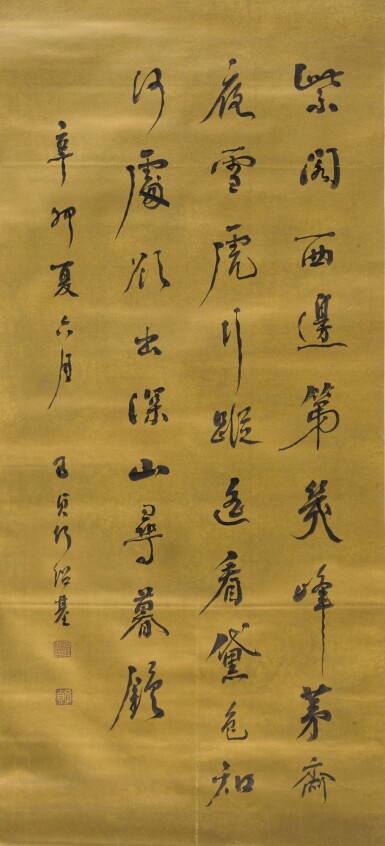 紫閣西邊第幾峰茅齋
夜雪虎行蹤遙看黛色知
何處欲出深山尋暮鐘
辛卯夏六月 子貞何紹基